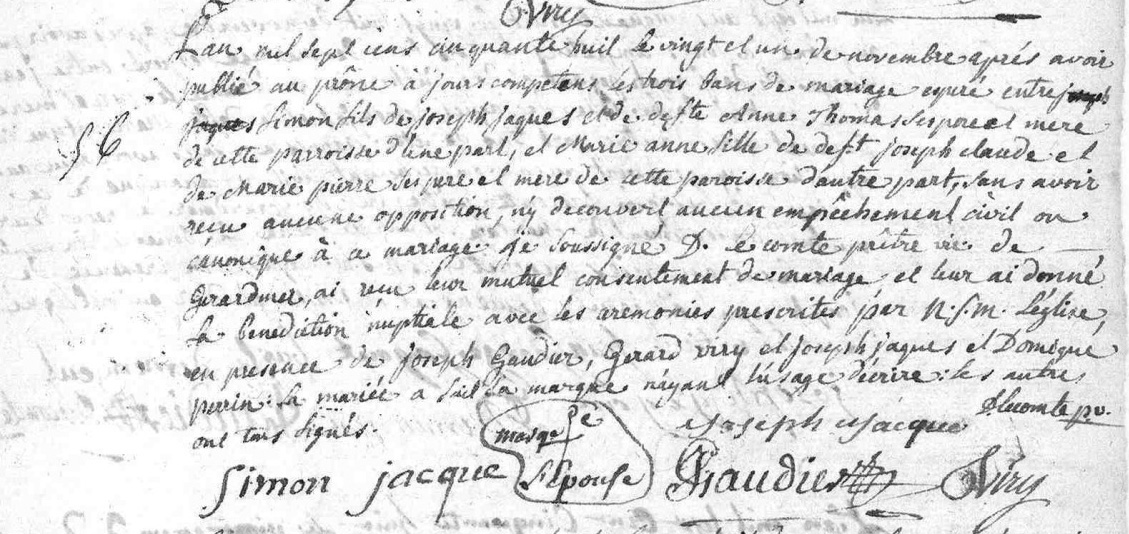 Viry
L'an mil sept cens cinquante huit le vingt et un de novembre après avoir
publié au prône à jours competens les trois bans de mariage espéré entre joseph
jaques Simon fils de joseph jaques et de deffte Anne Thomas ses pere et mere
56
de cette parroisse d'une part, et Marie anne fille de deft joseph claude et
de Marie pierre ses pere et mere de cette paroisse d'autre part, sans avoir
reçu aucune opposition, ny decouvert aucun empêchement civil ou
canonique à ce mariage je soussigné D. le comte prêtre vic. de
Gerardmer, ai reçu leur mutuel consentement de mariage, et leur ai donné
la benediction nuptiale avec les ceremonies prescrites par N. S. M. L'église,
en presence de joseph Gaudier, Gerard viry et joseph jaques et Domeque
perrin. la mariée a fait sa marque n'ayant l'usage d'écrire: les autres
ont tous signés.
Dlecomte pr.
marque de
l'Epouse
joseph jacque
simon jacque
Gaudier
Viry